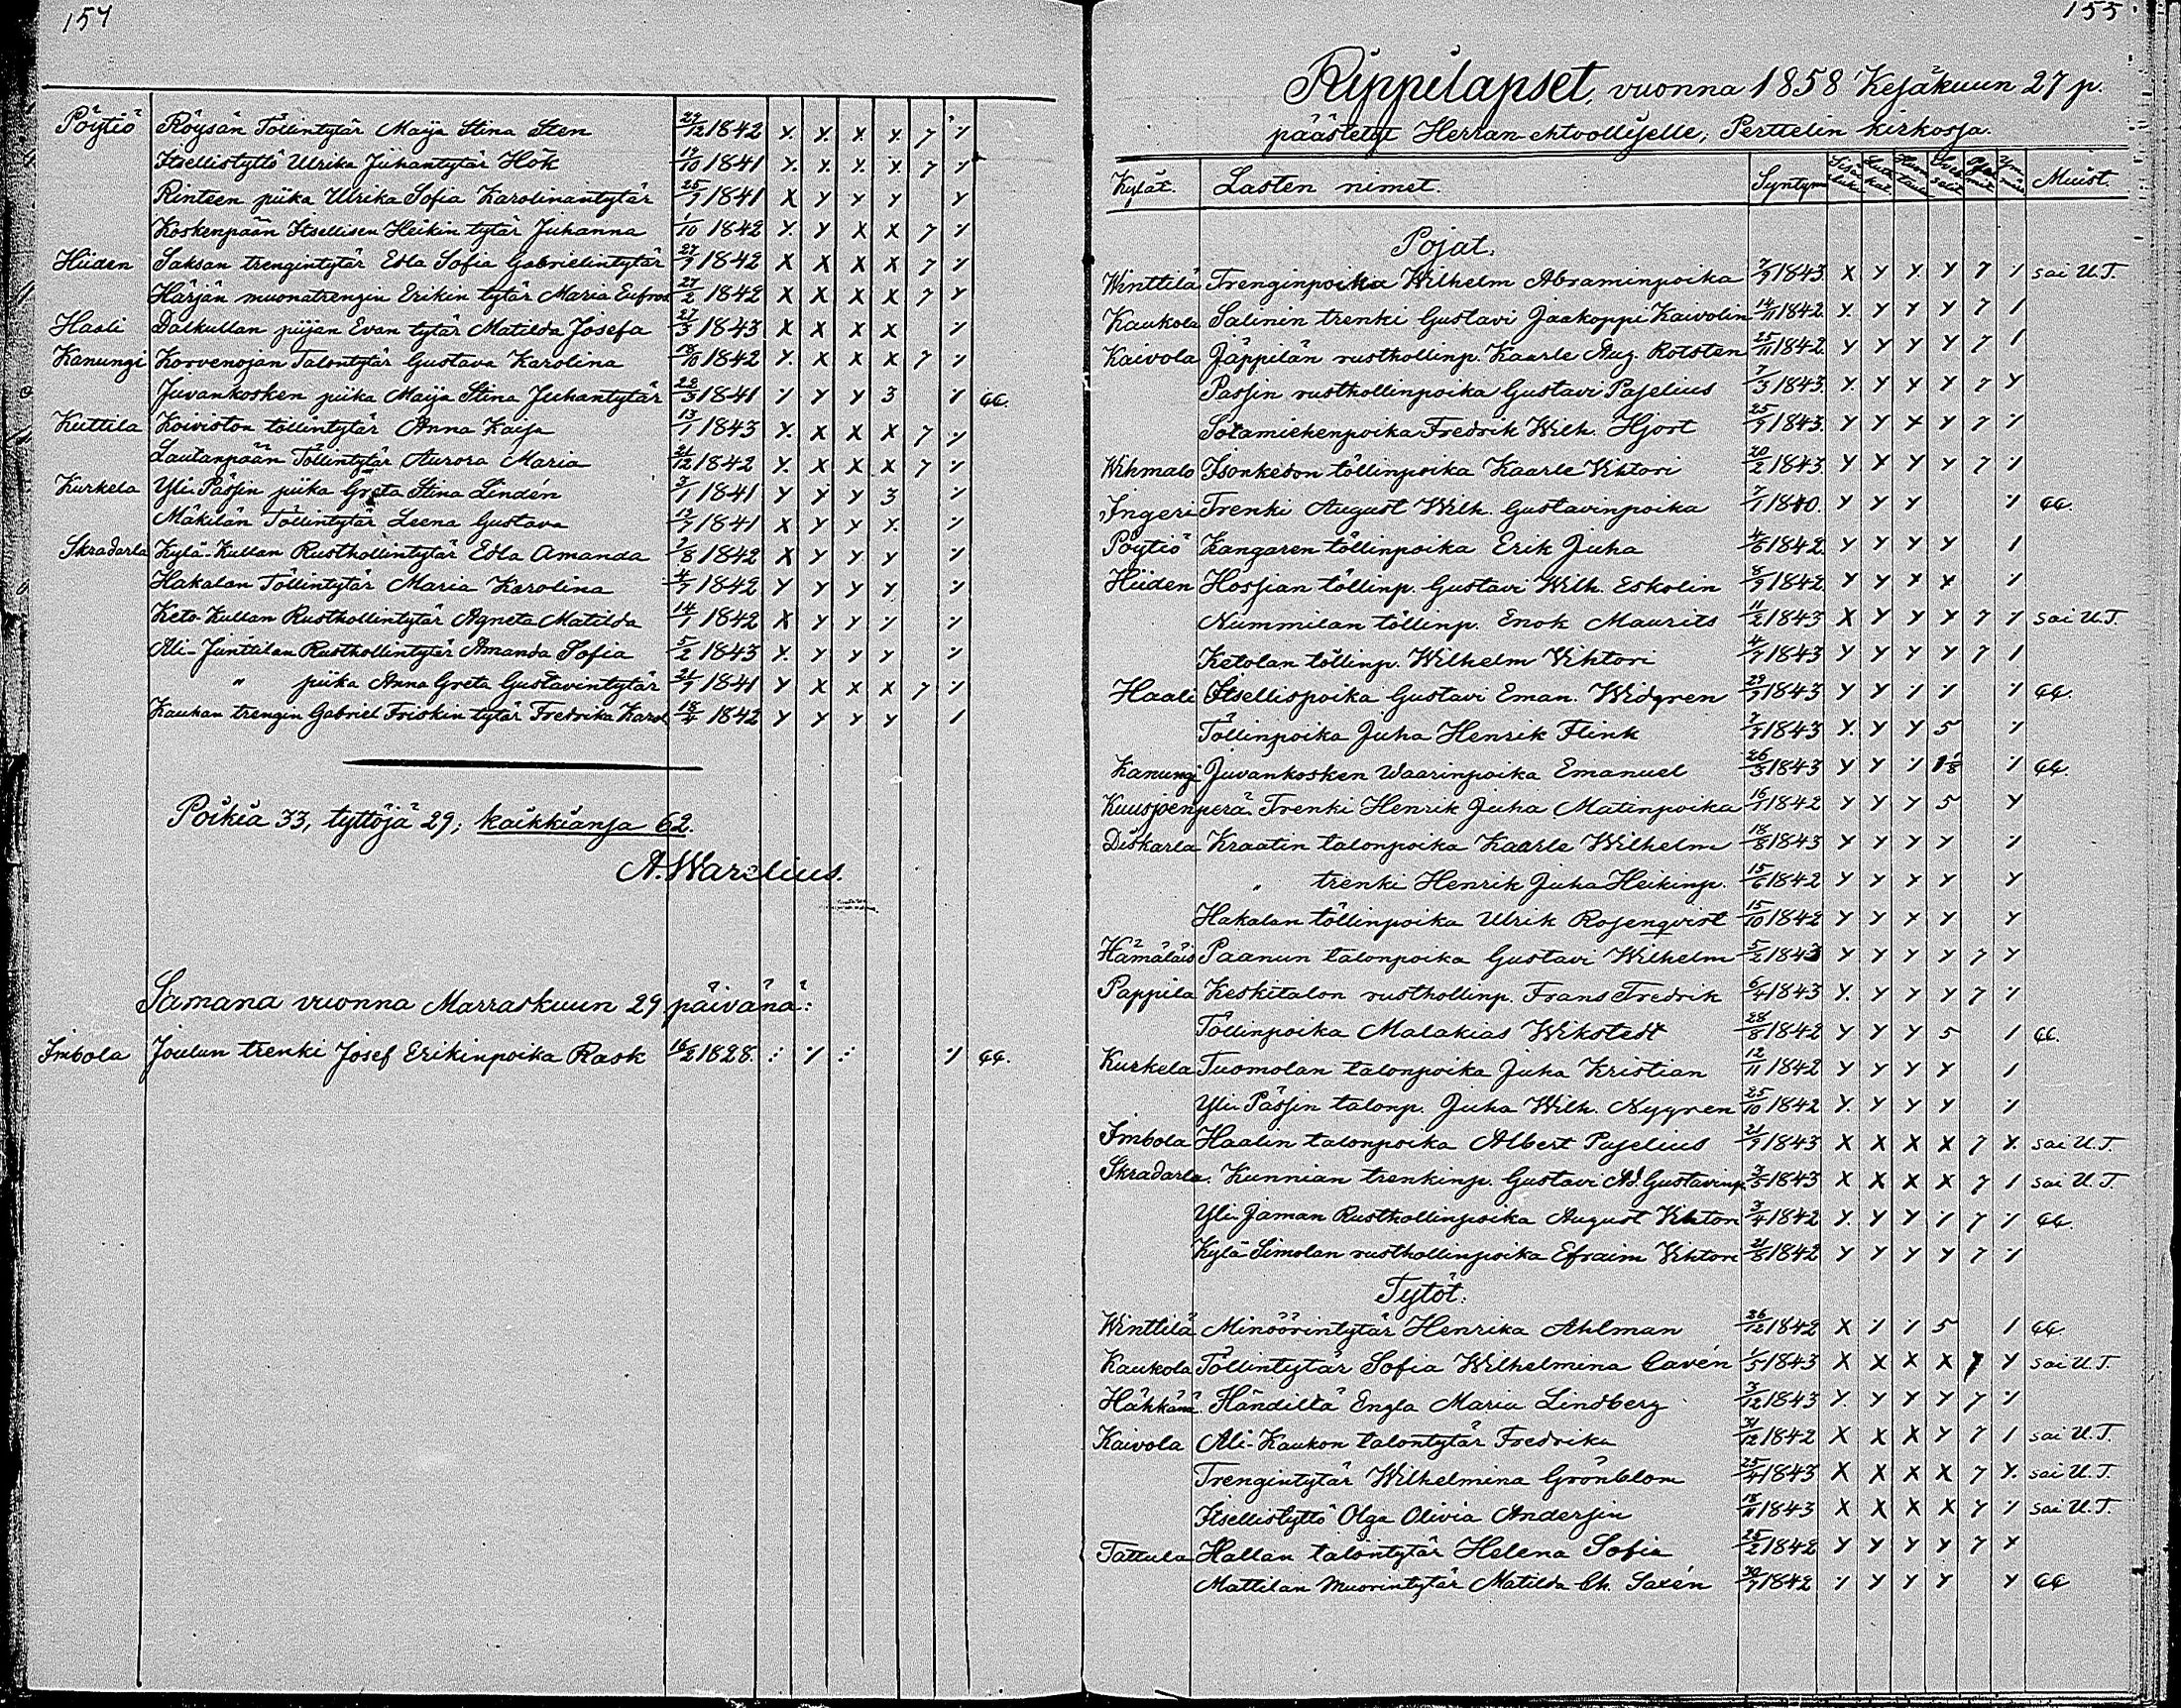 154
Pöytiö Röysän Töllintytär Maija Stina Sten 29/12 1842 x. x. x x 7 ٪
Itsellistyttö Ulrika Juhantytär Hök 19/10 1841 x. x. x. x. 7 ٪
Rinteen piika Ulrika Sofia Karolinantytär 25/7 1841 x y y y y
Koskenpään Itsellisen Heikin tytär Juhanna 1/10 1842 y. y x x 7 ٪
Hiiden Saksan trengintytär Edla Sofia Gabrielintytär 27/7 1842 x x x x 7 ٪
Härjän muonatrengin Erikin tytär Maria Eufros 27/2 1842 x x x x 7 y
Haali Dalkullan piijan Evan tytär Matilda Josefa 21/3 1843 x x x x ٪
Kanungi Korvenojan Talontytär Gustava Karolina 18/10 1842 y. x x x 7 ٪
Juvankosken piika Maija Stina Juhantytär 28/3 1841 ٪ y y 3 ٪ 44.
Kuttila Koiviston töllintytär Anna Kaija 13/7 1843 y. x x x 7 ٪
Lautanpään Töllintytär Aurora Maria 21/12 1842 y. x x x 7 ٪
Kurkela Yli-Pässin piika Greta Stina Lindén 3/1 1841 y y y 3 ٪
Mäkilän Töllintytär Leena Gustava 12/7 1841 x y y y. ٪
Skradarla Kylä-Kullan Rusthollintytär Edla Amanda 2/8 1842 x y y y ٪
Hakalan Töllintytär Maria Karolina 4/7 1842 y y y y ٪
Keto-Kullan Rusthollintytär Agneta Matilda 14/7 1842 x y y ٪ ٪
Ali-Junttilan Rusthollintytär Amanda Sofia 5/2 1843 y. y y y ٪
" piika Anna Greta Gustavintytär 21/7 1841 y x x x 7 ٪
Kaukan trengin Gabriel Friskin tytär Fredrika Karol 18/4 1842 y y y y 1
Poikia 33, tyttöjä 29; kaikkiansa 62.
A. Warelius.
Samana vuonna Marraskuun 29 päivänä:
Imbola Joulun trenki Josef Erikinpoika Rask 16/2 1828. ٪ 44.
155
Rippilapset, vuonna 1858 Kesäkuun 27 p.
päästetyt Herran-ehtoolliselle, Perttelin kirkossa.
Kylät. Lasten nimet. Syntym Muist.
Pojat.
Winttilä Trenginpoika Wilhelm Abraminpoika 7/9 1843 x y y y 7 ٪ sai U.T.
Kaukola Salinin trenki Gustavi Jaakoppi Kaivolin 14/11 1842. y. y y y 7 1
Kaivola Jäppilän rusthollinp. Kaarle Aug. Rotsten 25/11 1842. y y y y 7 1
Passin rusthollinpoika Gustavi Paselius 7/3 1843. y. y y y 7 y
Sotamiehenpoika Fredrik Wilh. Hjort 25/7 1843. y y y y 7 ٪
Wihmalo Isonkedon töllinpoika Kaarle Vihtori 20/2 1843. y y y y 7 ٪
Ingeri Trenki August Wilh. Gustavinpoika 7/7 1840. y y y ٪ 44.
Pöytiö Kangaren töllinpoika Erik Juha 4/6 1842. y y y y 1
Hiiden Hossian töllinp. Gustavi Wilh. Eskolin 8/9 1842. y y x x ٪
Nummilan töllinp. Enok Maurits 11/2 1843 x y y y 7 ٪ sai U.T.
Ketolan töllinp. Wilhelm Vihtori 4/7 1843 y y y y 7 1
Haali Itsellispoika Gustavi Eman. Widgren 29/7 1843 y y ٪ ٪ ٪ 44.
Töllinpoika Juha Henrik Flink 7/7 1843 y. y y 5 ٪
Kanungi Juvankosken Waarinpoika Emanuel 26/3 1843 y y ٪ ٪ 44.
Kuusjoenperä Trenki Henrik Juha Matinpoika 16/7 1842 y y y 5 y
Diskarla Kraatin talonpoika Kaarle Wilhelm 18/8 1843 y y y y ٪
" trenki Henrik Juha Heikinp. 15/6 1842 y y y y y
Hakalan töllinpoika Ulrik Rosenqvist 15/10 1842 y y y y y
Hämäläis Paanun talonpoika Gustavi Wilhelm 5/2 1843 y y y y 7 y
Pappila Keskitalon rusthollinp. Frans Fredrik 6/4 1843 y. y y y 7 ٪
Töllinpoika Malakias Wikstedt 28/8 1842 y y y 5 1 44.
Kurkela Tuomolan talonpoika Juha Kristian 12/11 1842 y y y y 1
Yli-Pässin talonp. Juha Wilh. Nygren 25/10 1842 y. y y y ٪
Imbola Haalin talonpoika Albert Paselius 21/9 1843 x x x x 7 y. sai U.T.
Skradarla. Kunnian trenkinp. Gustavi Ad. Gustavinp. 3/5 1843 x x x x 7 1 sai U.T.
Yli-Jaman Rusthollinpoika August Vihtori 3/4 1842 y. y y ٪ 7 ٪ 44.
Kylä-Simolan rusthollinpoika Efraim Vihtori 21/8 1842 y y y y 7 ٪
Tytöt.
Winttilä Minöörintytär Henrika Ahlman 26/12 1842 x ٪ ٪ 5 1 44
Kaukola Töllintytär Sofia Wilhelmina Cavén 1/5 1843 x x x x 7 y sai U.T.
Häkkänä. Händiltä Engla Maria Lindberg 3/12 1843 y. y y y 7 ٪
Kaivola Ali-Kaukon talontytär Fredrika 31/12 1842 x x x y 7 1 sai U.T.
Trengintytär Wilhelmina Grönblom 25/4 1843 x x x x 7 y. sai U.T.
Itsellistyttö Olga Olivia Andersin 18/11 1843 x x x x 7 ٪ sai U.T.
Tattula Hallan talontytär Helena Sofia 25/2 1842 y y y y 7 x
Mattilan Muorintytär Matilda Ch. Saxén 30/7 1842 ٪ y y y y 44